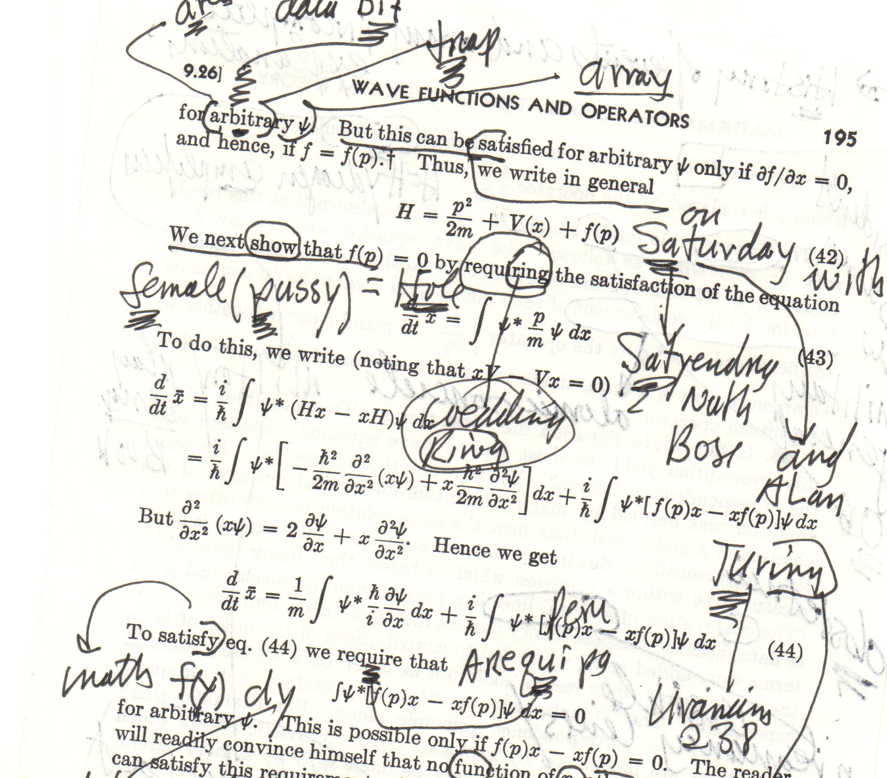 data bit
trap
array
9.26]
WAVE FUNCTIONS AND OPERATORS
195
for arbitrary ψ. But this can be satisfied for arbitrary ψ only if ∂f/∂x = 0,
and hence, if f = f(p).† Thus, we write in general
on
H = p²/2m + V(x) + f(p)
Saturday
(42)
with
We next show that f(p) = 0 by requiring the satisfaction of the equation
female (pussy) = Hole
d/dt x̄ = ∫ ψ* p/m ψ dx
(43)
Satyendra
Nath
Bose and
Alan
Turing
To do this, we write (noting that xV – Vx = 0)
d/dt x̄ = i/ħ ∫ ψ* (Hx – xH)ψ dx
wedding
Ring
= i/ħ ∫ ψ* [ – ħ²/2m ∂²/∂x² (xψ) + x ħ²/2m ∂²ψ/∂x² ] dx + i/ħ ∫ ψ*[f(p)x – xf(p)]ψ dx
But ∂²/∂x² (xψ) = 2 ∂ψ/∂x + x ∂²ψ/∂x². Hence we get
d/dt x̄ = 1/m ∫ ψ* ħ/i ∂ψ/∂x dx + i/ħ ∫ ψ* [f(p)x – xf(p)]ψ dx
(44)
Peru
Arequipa
To satisfy eq. (44) we require that
math f(y) dy
∫ψ*[f(p)x – xf(p)]ψ dx = 0
Uranium
238
for arbitrary ψ. This is possible only if f(p)x – xf(p) = 0. The reader
will readily convince himself that no function of
can satisfy this requirement